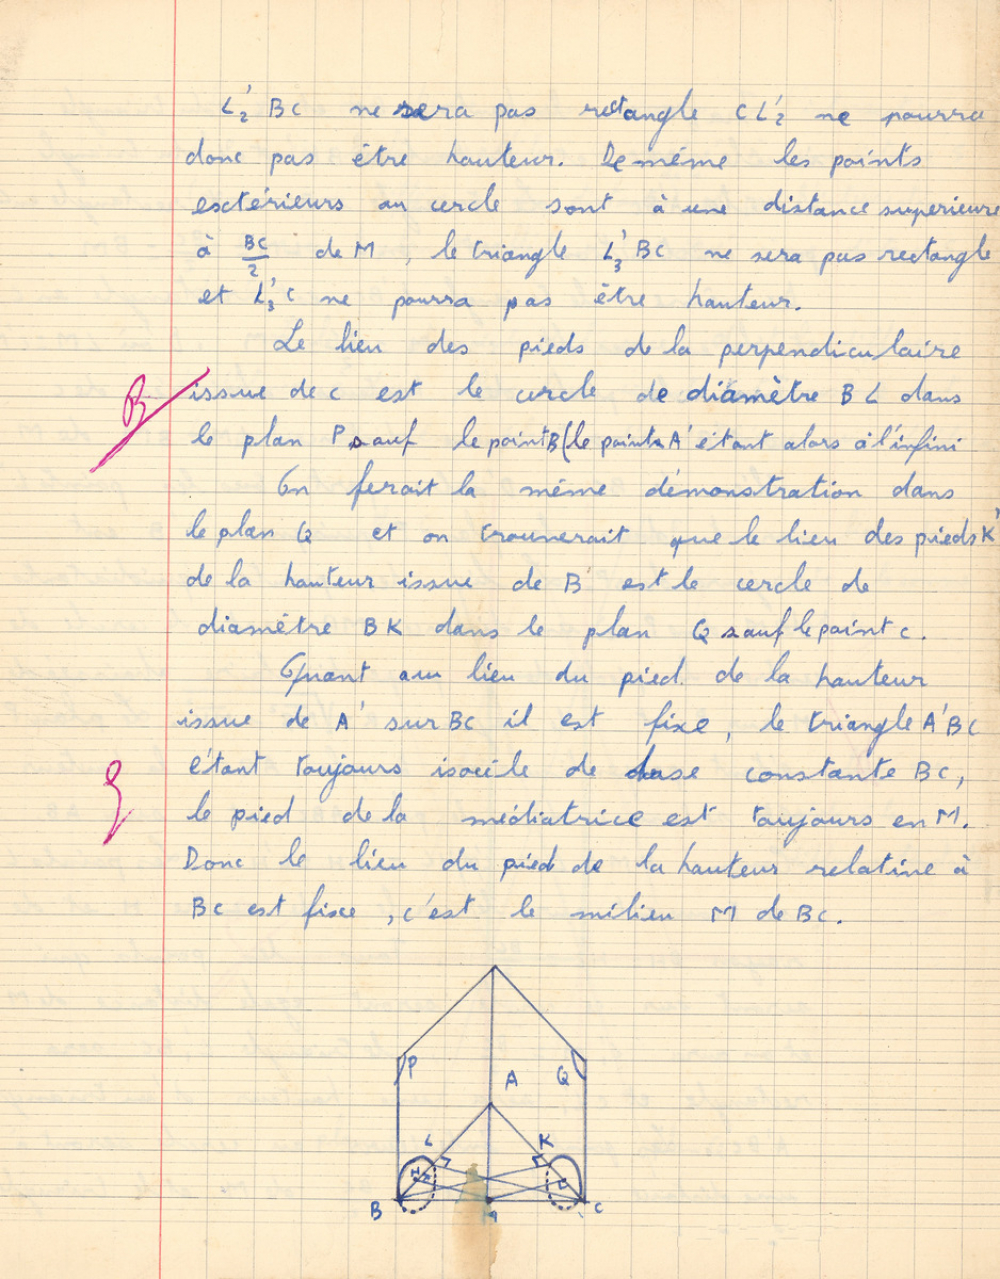 L'₂ BC ne sera pas rectangle CL'₂ ne pourra
donc pas être hauteur. De même les points
exctérieurs au cercle sont à une distance superieure
à BC/2 de M, le triangle L'₃ BC ne sera pas rectangle
et L'₃ C ne pourra pas être hauteur.
Le lieu des pieds de la perpendiculaire
issue de C est le cercle de diamètre BL dans
le plan P sauf le point B (le point A' étant alors à l'infini
On ferait la même démonstration dans
le plan Q et on trouverait que le lieu des pieds K'
de la hauteur issue de B est le cercle de
diamètre BK dans le plan Q sauf le point C.
Quant au lieu du pied de la hauteur
issue de A' sur BC il est fixe, le triangle A'BC
étant toujours isocèle de base constante BC,
le pied de la médiatrice est toujours en M.
Donc le lieu du pied de la hauteur relative à
BC est fixe, c'est le milieu M de BC.
P
A
Q
L
K
B
C